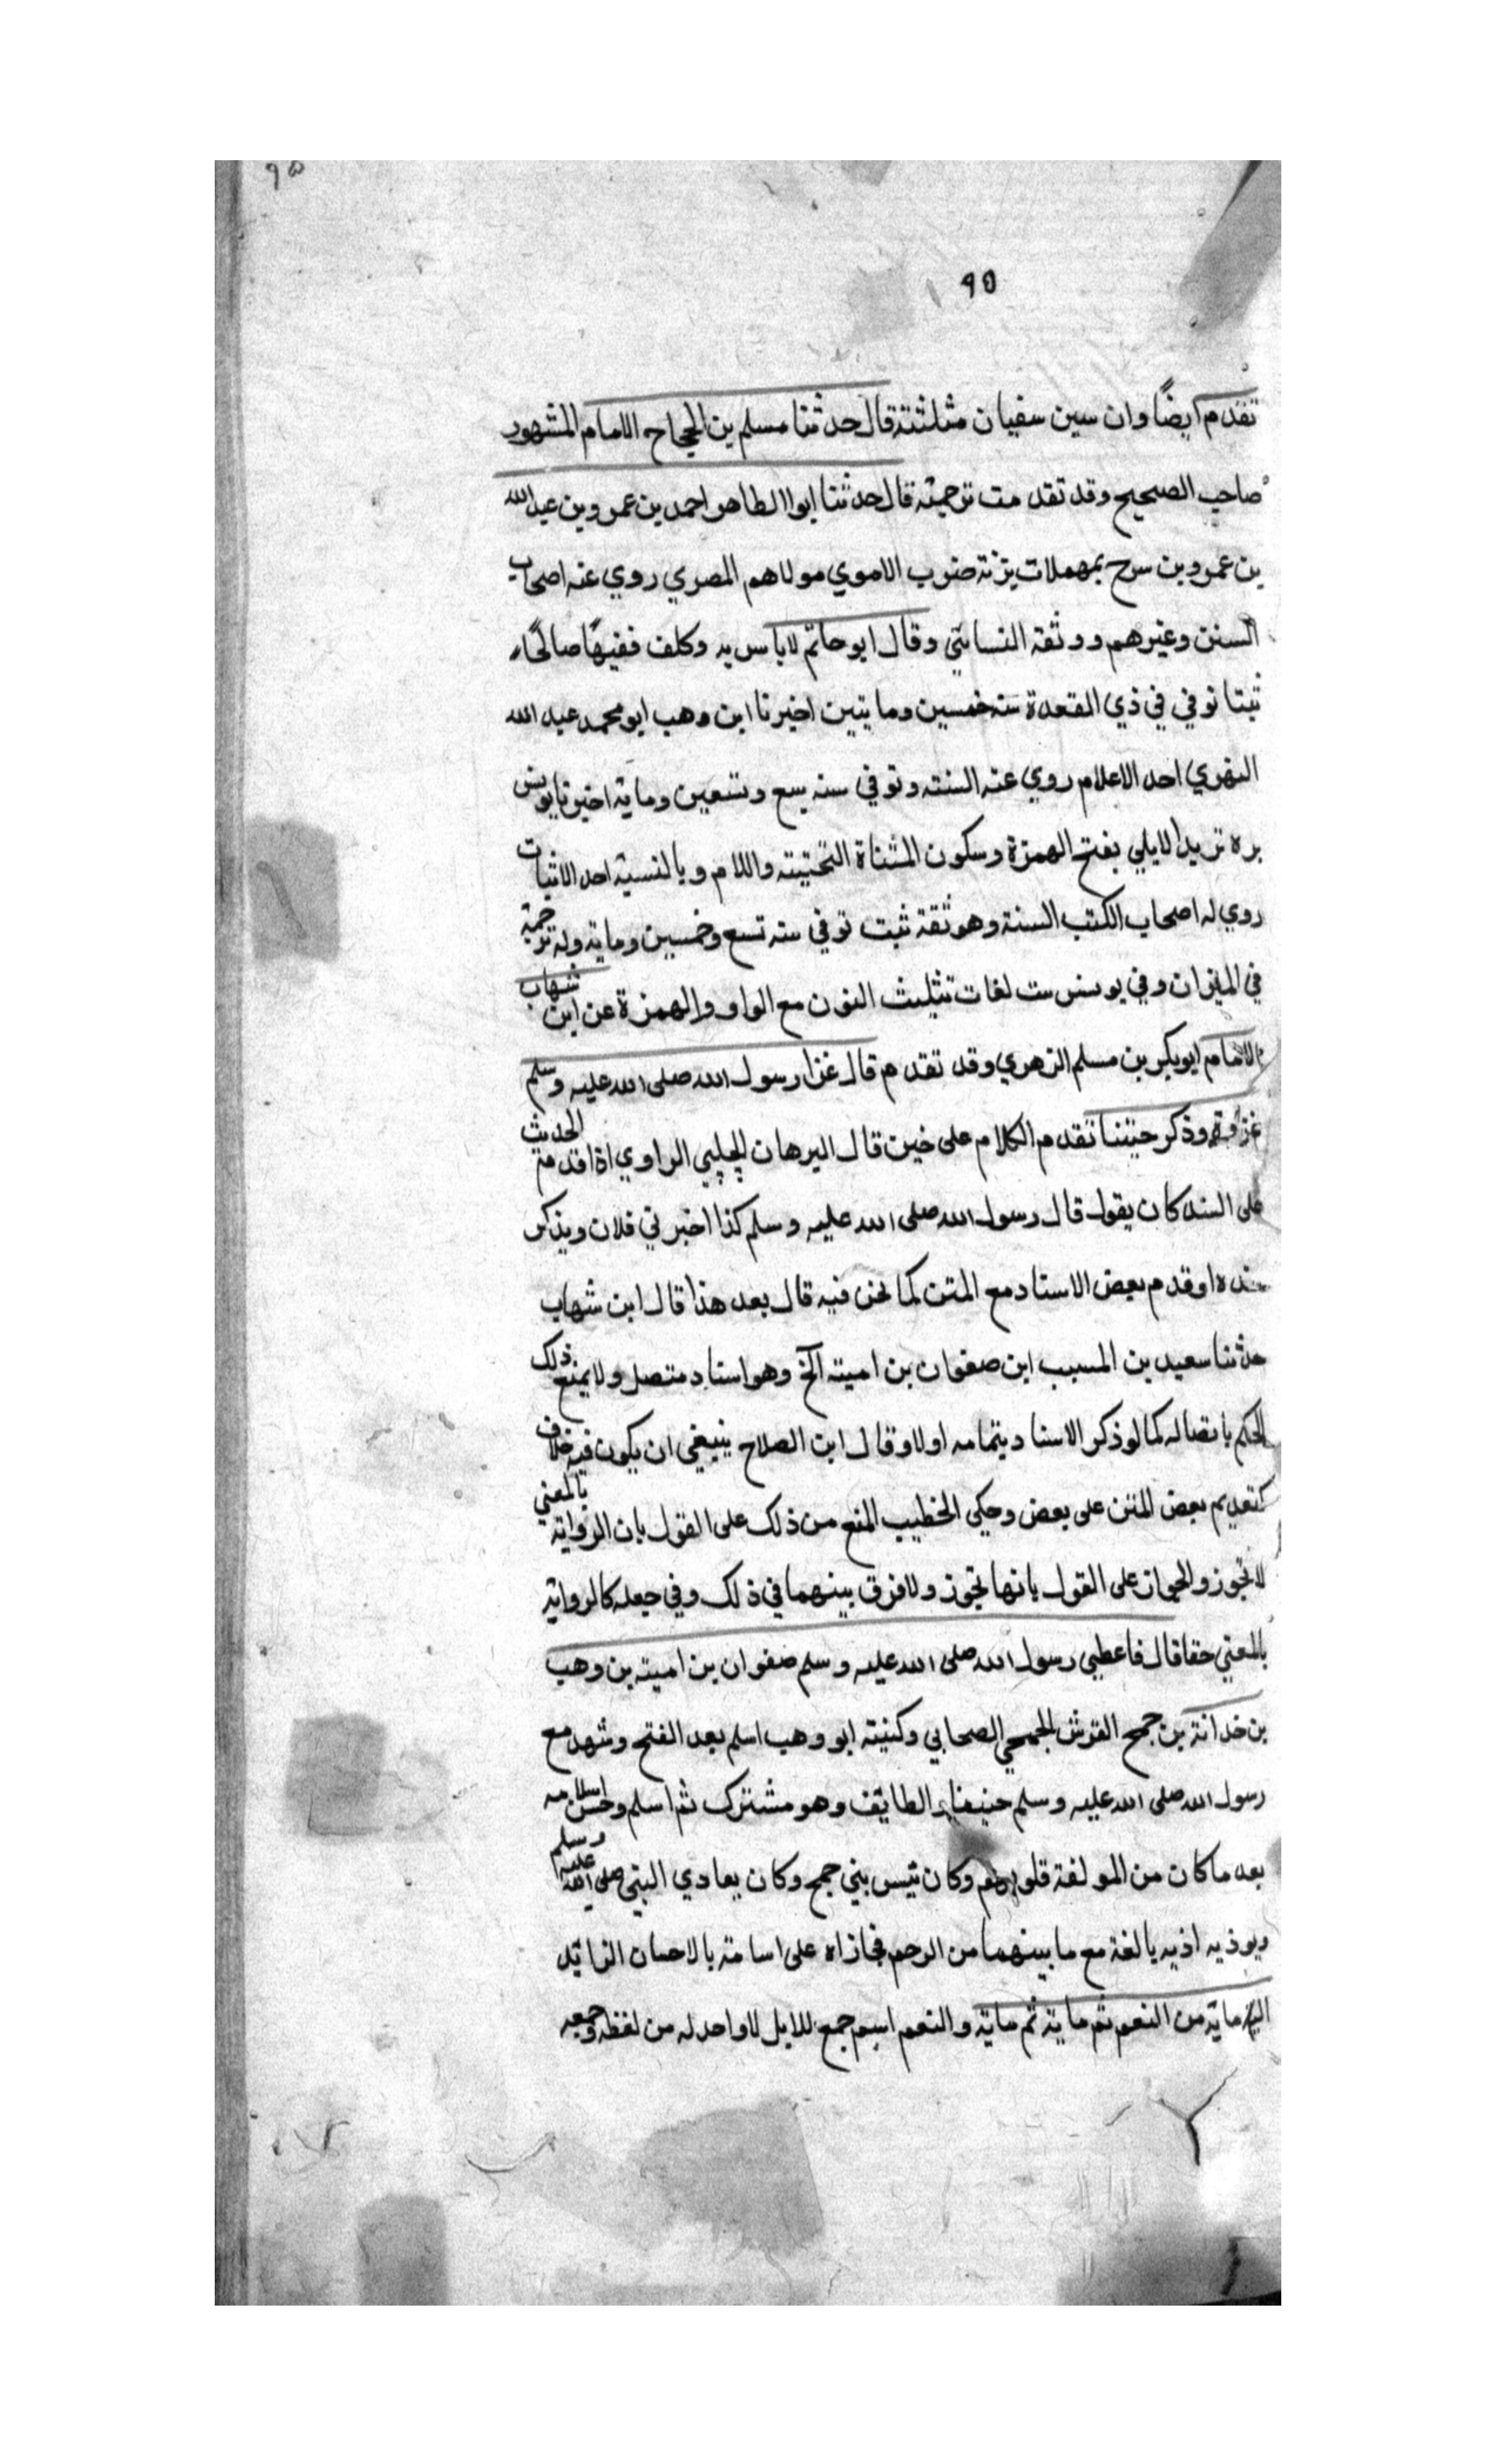 ٩٥
٩٥
تقدم ايضًا وان سين سفيان مثلثته قال حدثنا مسلم بن الحجاح الامام المشهور
صاحب الصحيح وقد تقدمت ترجمته قال حدثنا ابوا الطاهر احمد بن عمرو بن عبد الله
بن عمرو بن سرح بمهملات بزنة ضرب الاموي مولاهم المصري روي عنه اصحاب
السنن وغيرهم ووثقة النسائي وقال ابو حاتم لاباس به وكلف فقيهًا صالحًا
ثبتا توفي في ذي القعدة سنه خمسين ومايتين اخبرنا ابن وهب ابو محمد عبد الله
الفهري احد الاعلام روي عنه الستة وتوفي سنه سبع وتسعين وماية اخبرنا يونس
بره تزيد الايلي بفتح الهمزة وسكون المثناة التحتيته واللام وبالنسبة احد الاثبات
روي له اصحاب الكتب الستة وهو ثقة ثبت توفي سنه تسع وخمسين وماية وله ترجمة
في الميزان وفي يونس ست لغات تثليث النون مع الواو والهمزة عن ابن شهاب
الامام ابوبكر بن مسلم الزهري وقد تقدم قال غزا رسول الله صلى الله عليه وسلم
غزاوة وذكر حنينا تقدم الكلام على حنين قال البرهان الحلبي الراوي اذا قدم متن الحديث
على السند كان يقول قال رسول الله صلى الله عليه وسلم كذا اخبرني فلان ويذكر
سنده او قدم بعض الاسناد مع المتن كما نحن فيه قال بعد هذا قال ابن شهاب
حدثنا سعيد بن المسيب ابن صفوان بن امية الخ وهو اسناد متصل ولا يمنع ذلك
الحكم باتصاله كما لو ذكر الاسناد بتمامه اولا وقال ابن الصلاح ينبغي ان يكون فيه خلاف
كتقديم بعض المتن على بعض وحكي الخطيب المنع من ذلك على القول بان الرواية بالمعني
لا تجوز والجواز على القول بانها تجوز ولا فرق بينهما في ذلك وفي جعله كالرواية
بالمعني حقا قال فاعطي رسول الله صلى الله عليه وسلم صفوان بن امية بن وهب
بن خدانة بن جمح القرش الجمحي الصحابي وكنيته ابو وهب اسلم بعد الفتح وشهد مع
رسول الله صلى الله عليه وسلم حنينا والطايف وهو مشترك ثم اسلم وحسن اسلامه
بعد ما كان من المولفة قلوبهم وكان ئيس بني جمح وكان يعادي النبي صلى الله عليه وسلم
ويوذيه اذيه بالغة مع ما بينهما من الرحم فجازاه على اساته بالاحسان الزائد
اليه ماية من النعم ثم ماية ثم ماية والنعم اسم جمع للابل لا واحد له من لفظه وجمعه